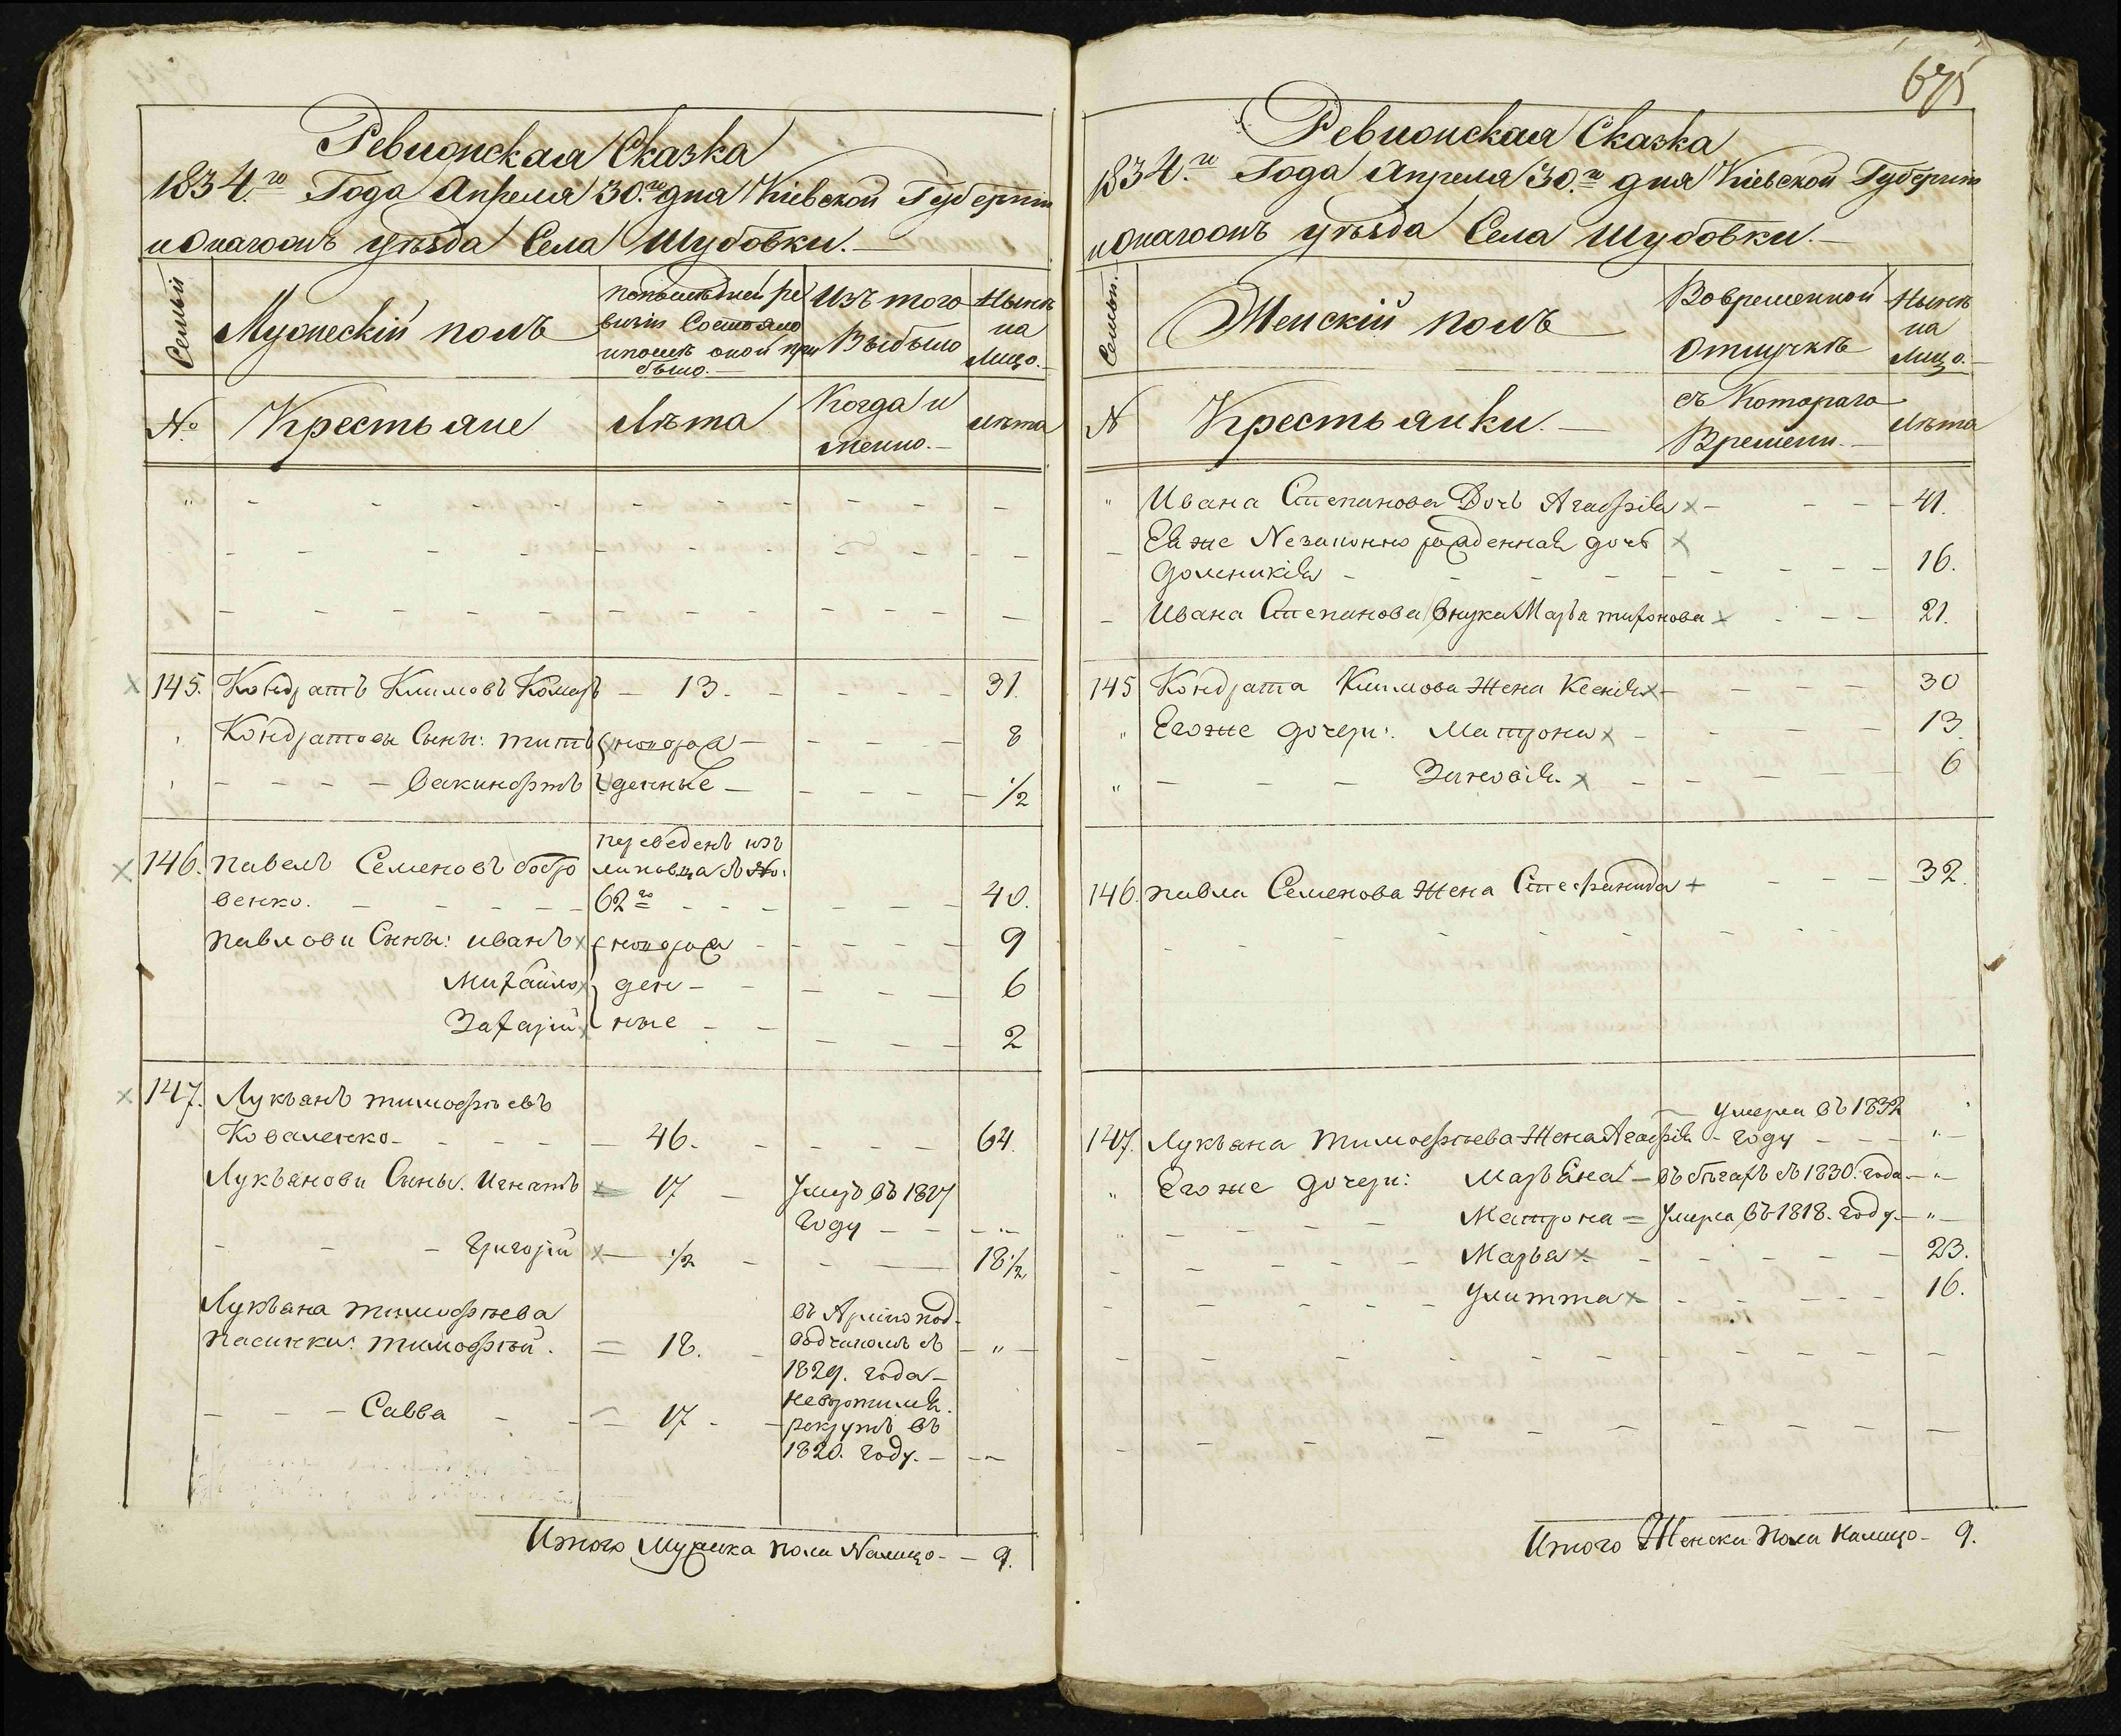 Ревизская Сказка
1834.го Года Апреля 30.го дня Кіевской Губерніи
уѣзда Села Шубовки.
Семьи
Мужескій полъ
По послѣдней ре
визіи Состояло
и послѣ оной при
было.
Изъ того
Выбыло
Нынѣ
на
Лицо.
№
Крестьяне
Лѣта
Когда и
менно.
Лѣта
145. Кондратъ Климовъ Комаръ — 13. 31.
Кондратовы Сыны: Титъ новорож 8
Вакинфтъ денные 1/2
146. Павелъ Семеновъ бобро
венко.
переведенъ изъ
62го 40.
Павлови Сыны: Иванъ новорож 9
Михайло ден 6
Захарій ные 2
147. Лукьянъ Тимофѣевъ
Коваленко 46. 64.
Лукьянови Сыны. Игнатъ 17 Умеръ въ 1827
году
Григорій 1/2 18 1/2
Лукьяна Тимофѣева
пасинки: Тимофѣй. 18.
1829. года
Савва 17
рекрутъ въ
1820. году.
Итого Мужеска пола Налицо 9.
675
Ревизская Сказка
1834.го Года Апреля 30.го дня Кіевской Губерніи
уѣзда Села Шубовки.
Семьи.
Женскій полъ
Во временной
отлучкѣ
Нынѣ
на
Лицо.
№
Крестьянки.
съ Котораго
Времени.
Лѣта
Ивана Степанова Дочь Агафія 41.
Ея же Незаконно рожденная дочь
Доменикія 16.
Ивана Степанова Внука Марья Тихонова 21.
145 Кондрата Климова Жена Ксенія 30
Его же дочери: Матрона 13.
Зиновія 6
146. Павла Семенова Жена Стефанида 32.
Умерла въ 1832
147. Лукьяна Тимофѣева Жена Агафія году
Его же дочери: Марьяна въ бѣгахъ съ 1830. года
Матрона Умерла въ 1818. году.
Марья 23.
Улитта 16.
Итого Женска Пола Налицо 9.